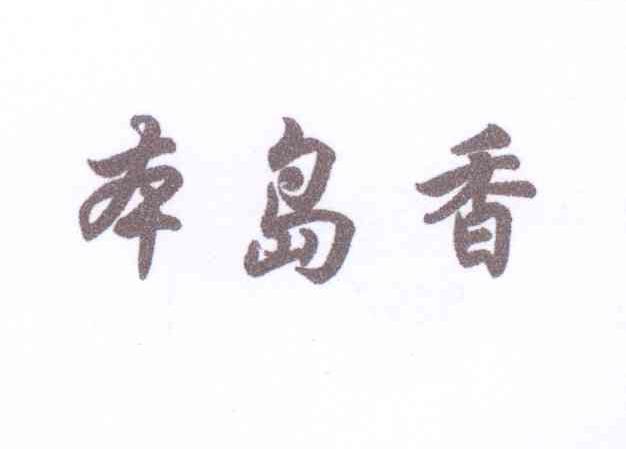 本岛香